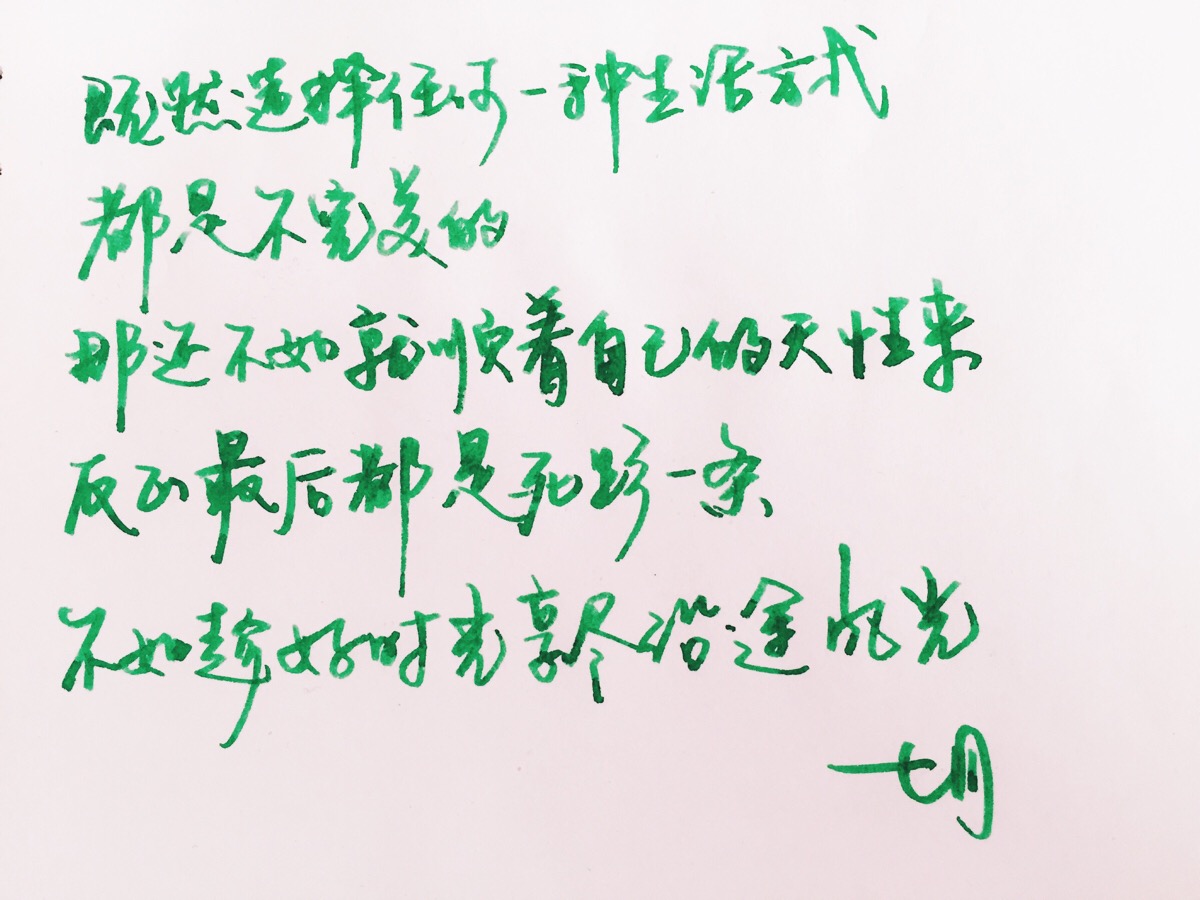 既然选择任何一种生活方式
都是不完美的
那还不如就顺着自己的天性来
反正最后都是死路一条
不如趁好时光享尽沿途风光
七月